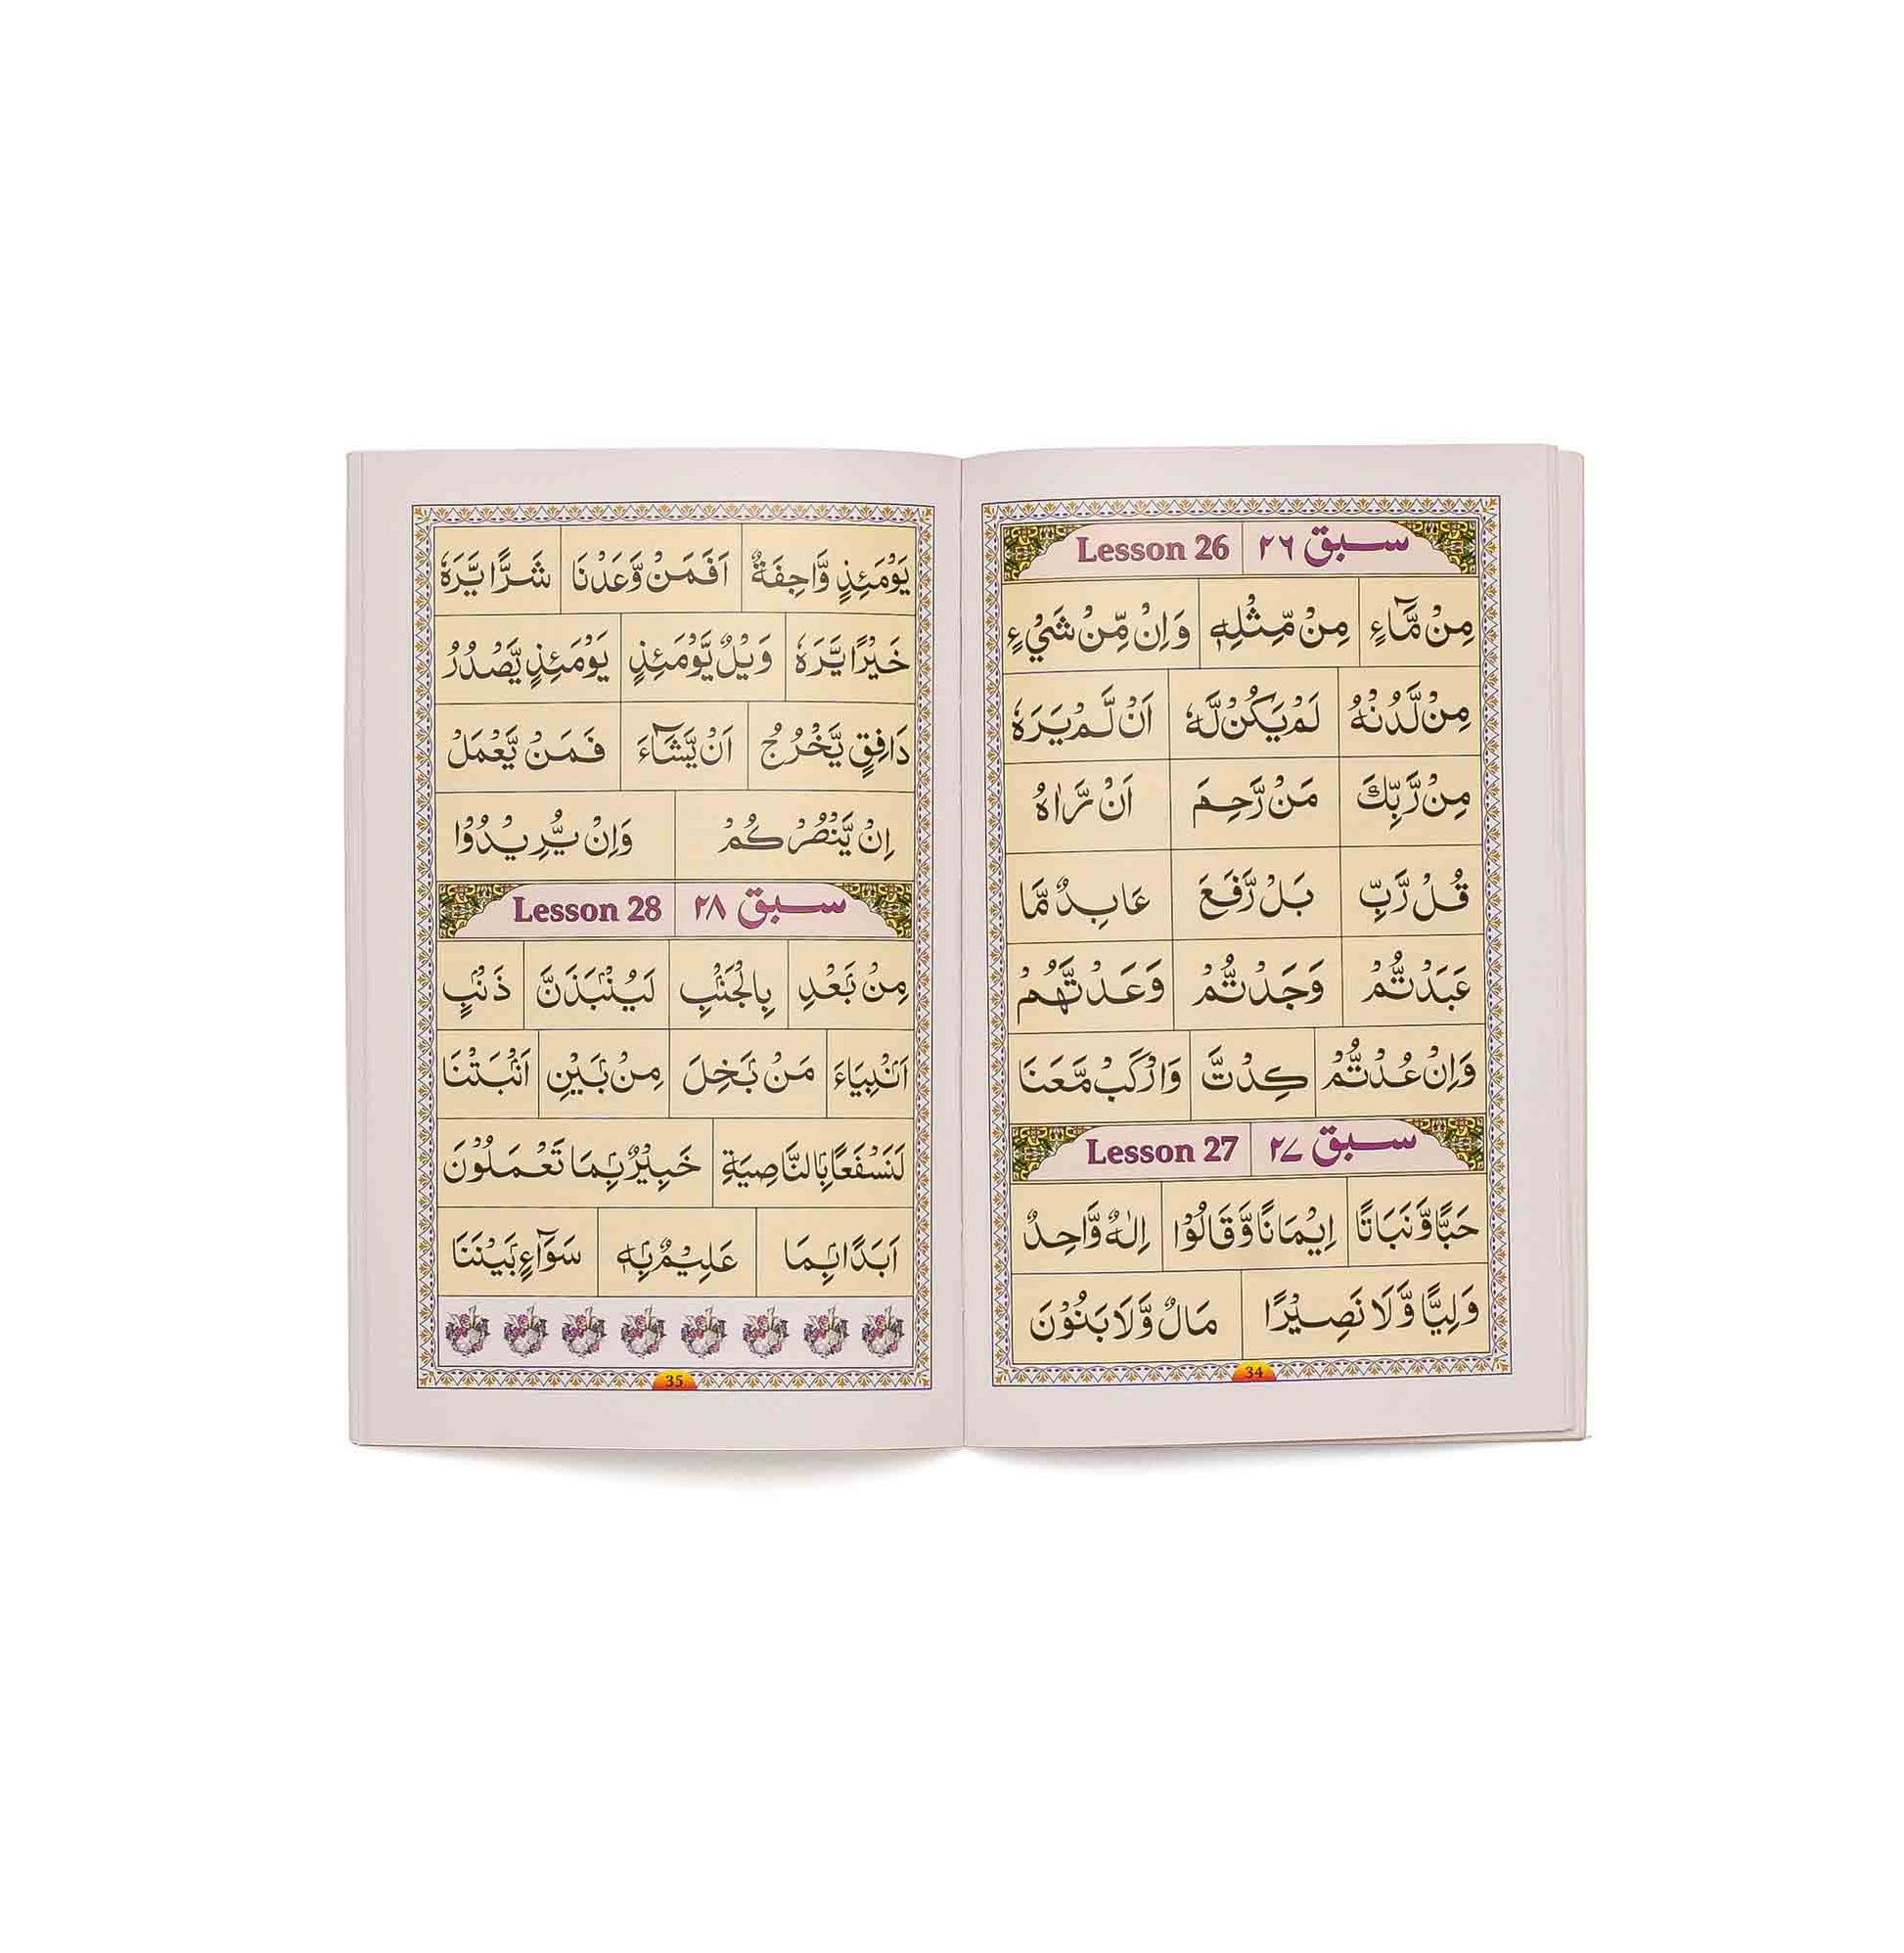 سبق ۲۶ Lesson 26
مِنْ مَّآءٍ مِنْ مِّثْلِهٖ وَاِنْ مِّنْ شَیْءٍ
مِنْ لَّدُنْهُ لَمْ یَكُنْ لَّهٗ اَنْ لَّمْ یَرَهٗ
مِنْ رَّبِّكَ مَنْ رَّحِمَ اَنْ رَّاٰهُ
قُلْ رَّبِّ بَلْ رَّفَعَ عَابِدٌ مَّا
عَبَدْتُّمْ وَجَدْتُّمْ وَعَدْتَّهُمْ
وَاِنْ عُدْتُّمْ كِدْتَّ وَارْكَبْ مَّعَنَا
سبق ۲۷ Lesson 27
حَبًّا وَّنَبَاتًا اِیْمَانًا وَّقَالُوْا اِلٰهٌ وَّاحِدٌ
وَلِیًّا وَّلَا نَصِیْرًا مَالٌ وَّلَا بَنُوْنَ
34
یَوْمَئِذٍ وَّاجِفَةٌ اَفَمَنْ وَّعَدْنَا شَرًّا یَّرَهٗ
خَیْرًا یَّرَهٗ وَیْلٌ یَّوْمَئِذٍ یَوْمَئِذٍ یَّصْدُرُ
دَافِقٍ یَّخْرُجُ اَنْ یَّشَآءَ فَمَنْ یَّعْمَلْ
اِنْ یَّنْصُرْكُمْ وَاِنْ یُّرِیْدُوْا
سبق ۲۸ Lesson 28
مِنْۢ بَعْدِ بِالْجَنْۢبِ لَیُنْۢبَذَنَّ ذَنْۢبٍ
اَنْۢبِیَاءَ مَنْۢ بَخِلَ مِنْۢ بَیْنِ اَنْۢبَتْنَا
لَنَسْفَعًاۢ بِالنَّاصِیَةِ خَبِیْرٌۢ بِمَا تَعْمَلُوْنَ
اَبَدًاۢ بِمَا عَلِیْمٌۢ بِهٖ سَوَآءٍۢ بَیْنَنَا
35